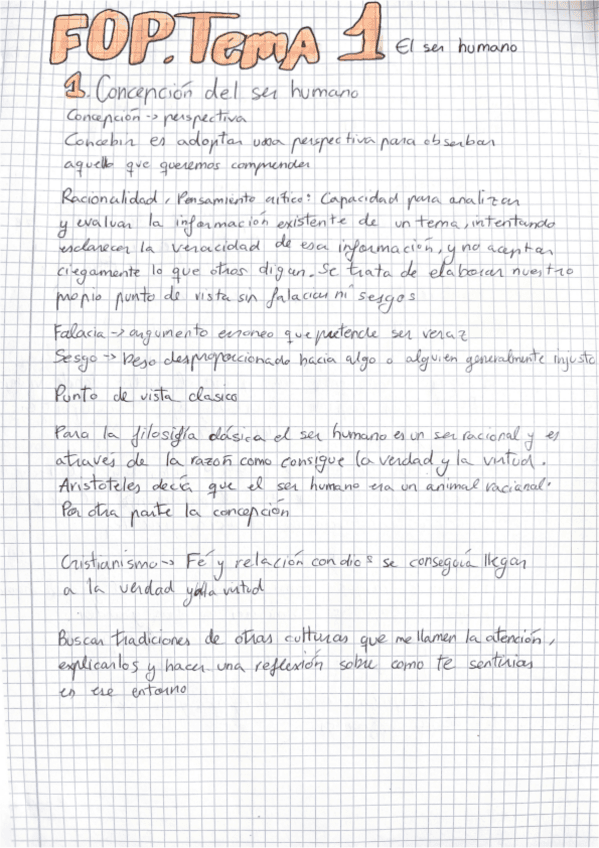 FOP. Tema 1 El ser humano
1. Concepción del ser humano
Concepción -> perspectiva
Concebir es adoptar una perspectiva para observar
aquello que queremos comprender
Racionalidad, Pensamiento crítico: Capacidad para analizar
y evaluar la información existente de un tema, intentando
esclarecer la veracidad de esa información, y no aceptar
ciegamente lo que otros digan. Se trata de elaborar nuestro
propio punto de vista sin falacias ni sesgos
Falacia -> argumento erroneo que pretende ser veraz
Sesgo -> Peso desproporcionado hacia algo o alguien generalmente injusto
Punto de vista clasico
Para la filosofía clásica el ser humano es un ser racional y es
através de la razón como consigue la verdad y la virtud.
Aristoteles decía que el ser humano era un animal racional.
Por otra parte la concepción
Cristianismo -> Fé y relación con dios se conseguía llegar
a la verdad y a la virtud
Buscar tradiciones de otras culturas que me llamen la atención,
explicarlos y hacer una reflexión sobre como te sentirias
en ese entorno